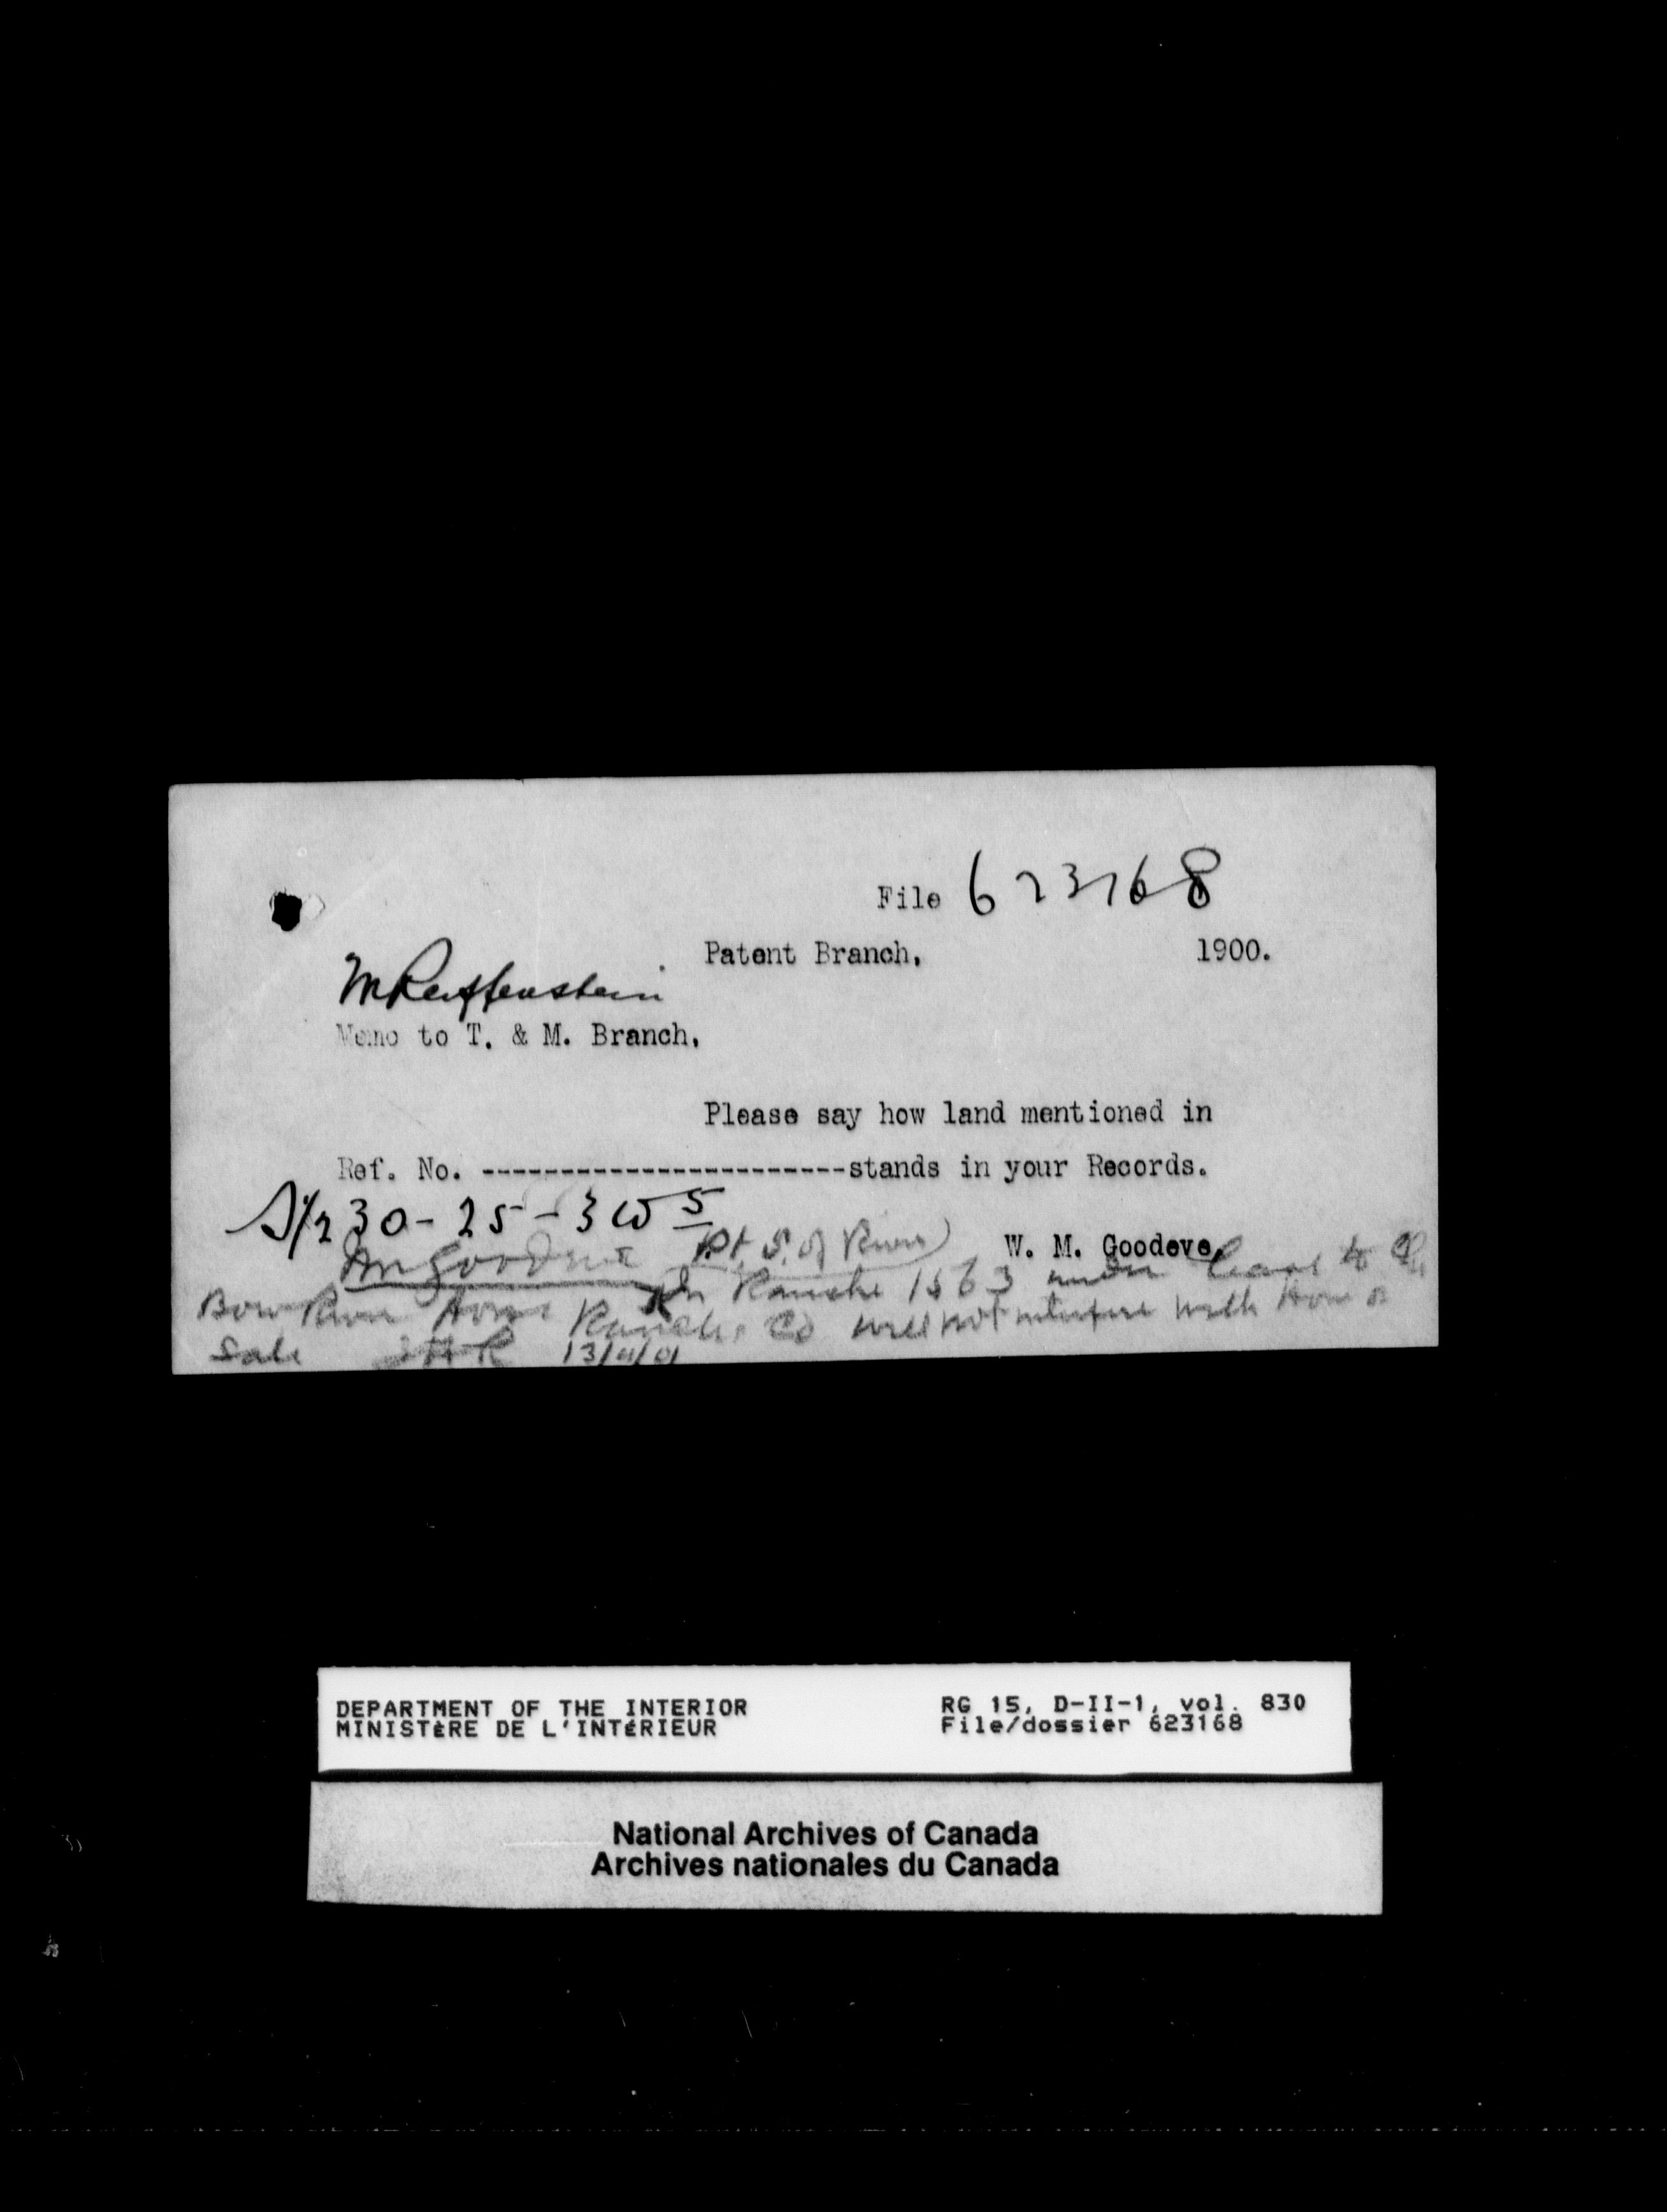 File 623168
Patent Branch, 1900.
Mr Reiffenstein
Memo to T. & M. Branch.
Please say how land mentioned in
Ref. No. -----------------------stands in your Records.
S½ 30-25-3W5
Pt. S. of River)
W. M. Goodeve,
In Ranche 1563 under lease to The
Bow River Horse Ranche Co will not interfere with Hom or
Sale 13/4/01
DEPARTMENT OF THE INTERIOR
MINISTÈRE DE L'INTÉRIEUR
RG 15, D-II-1, vol. 830
File/dossier 623168
National Archives of Canada
Archives nationales du Canada